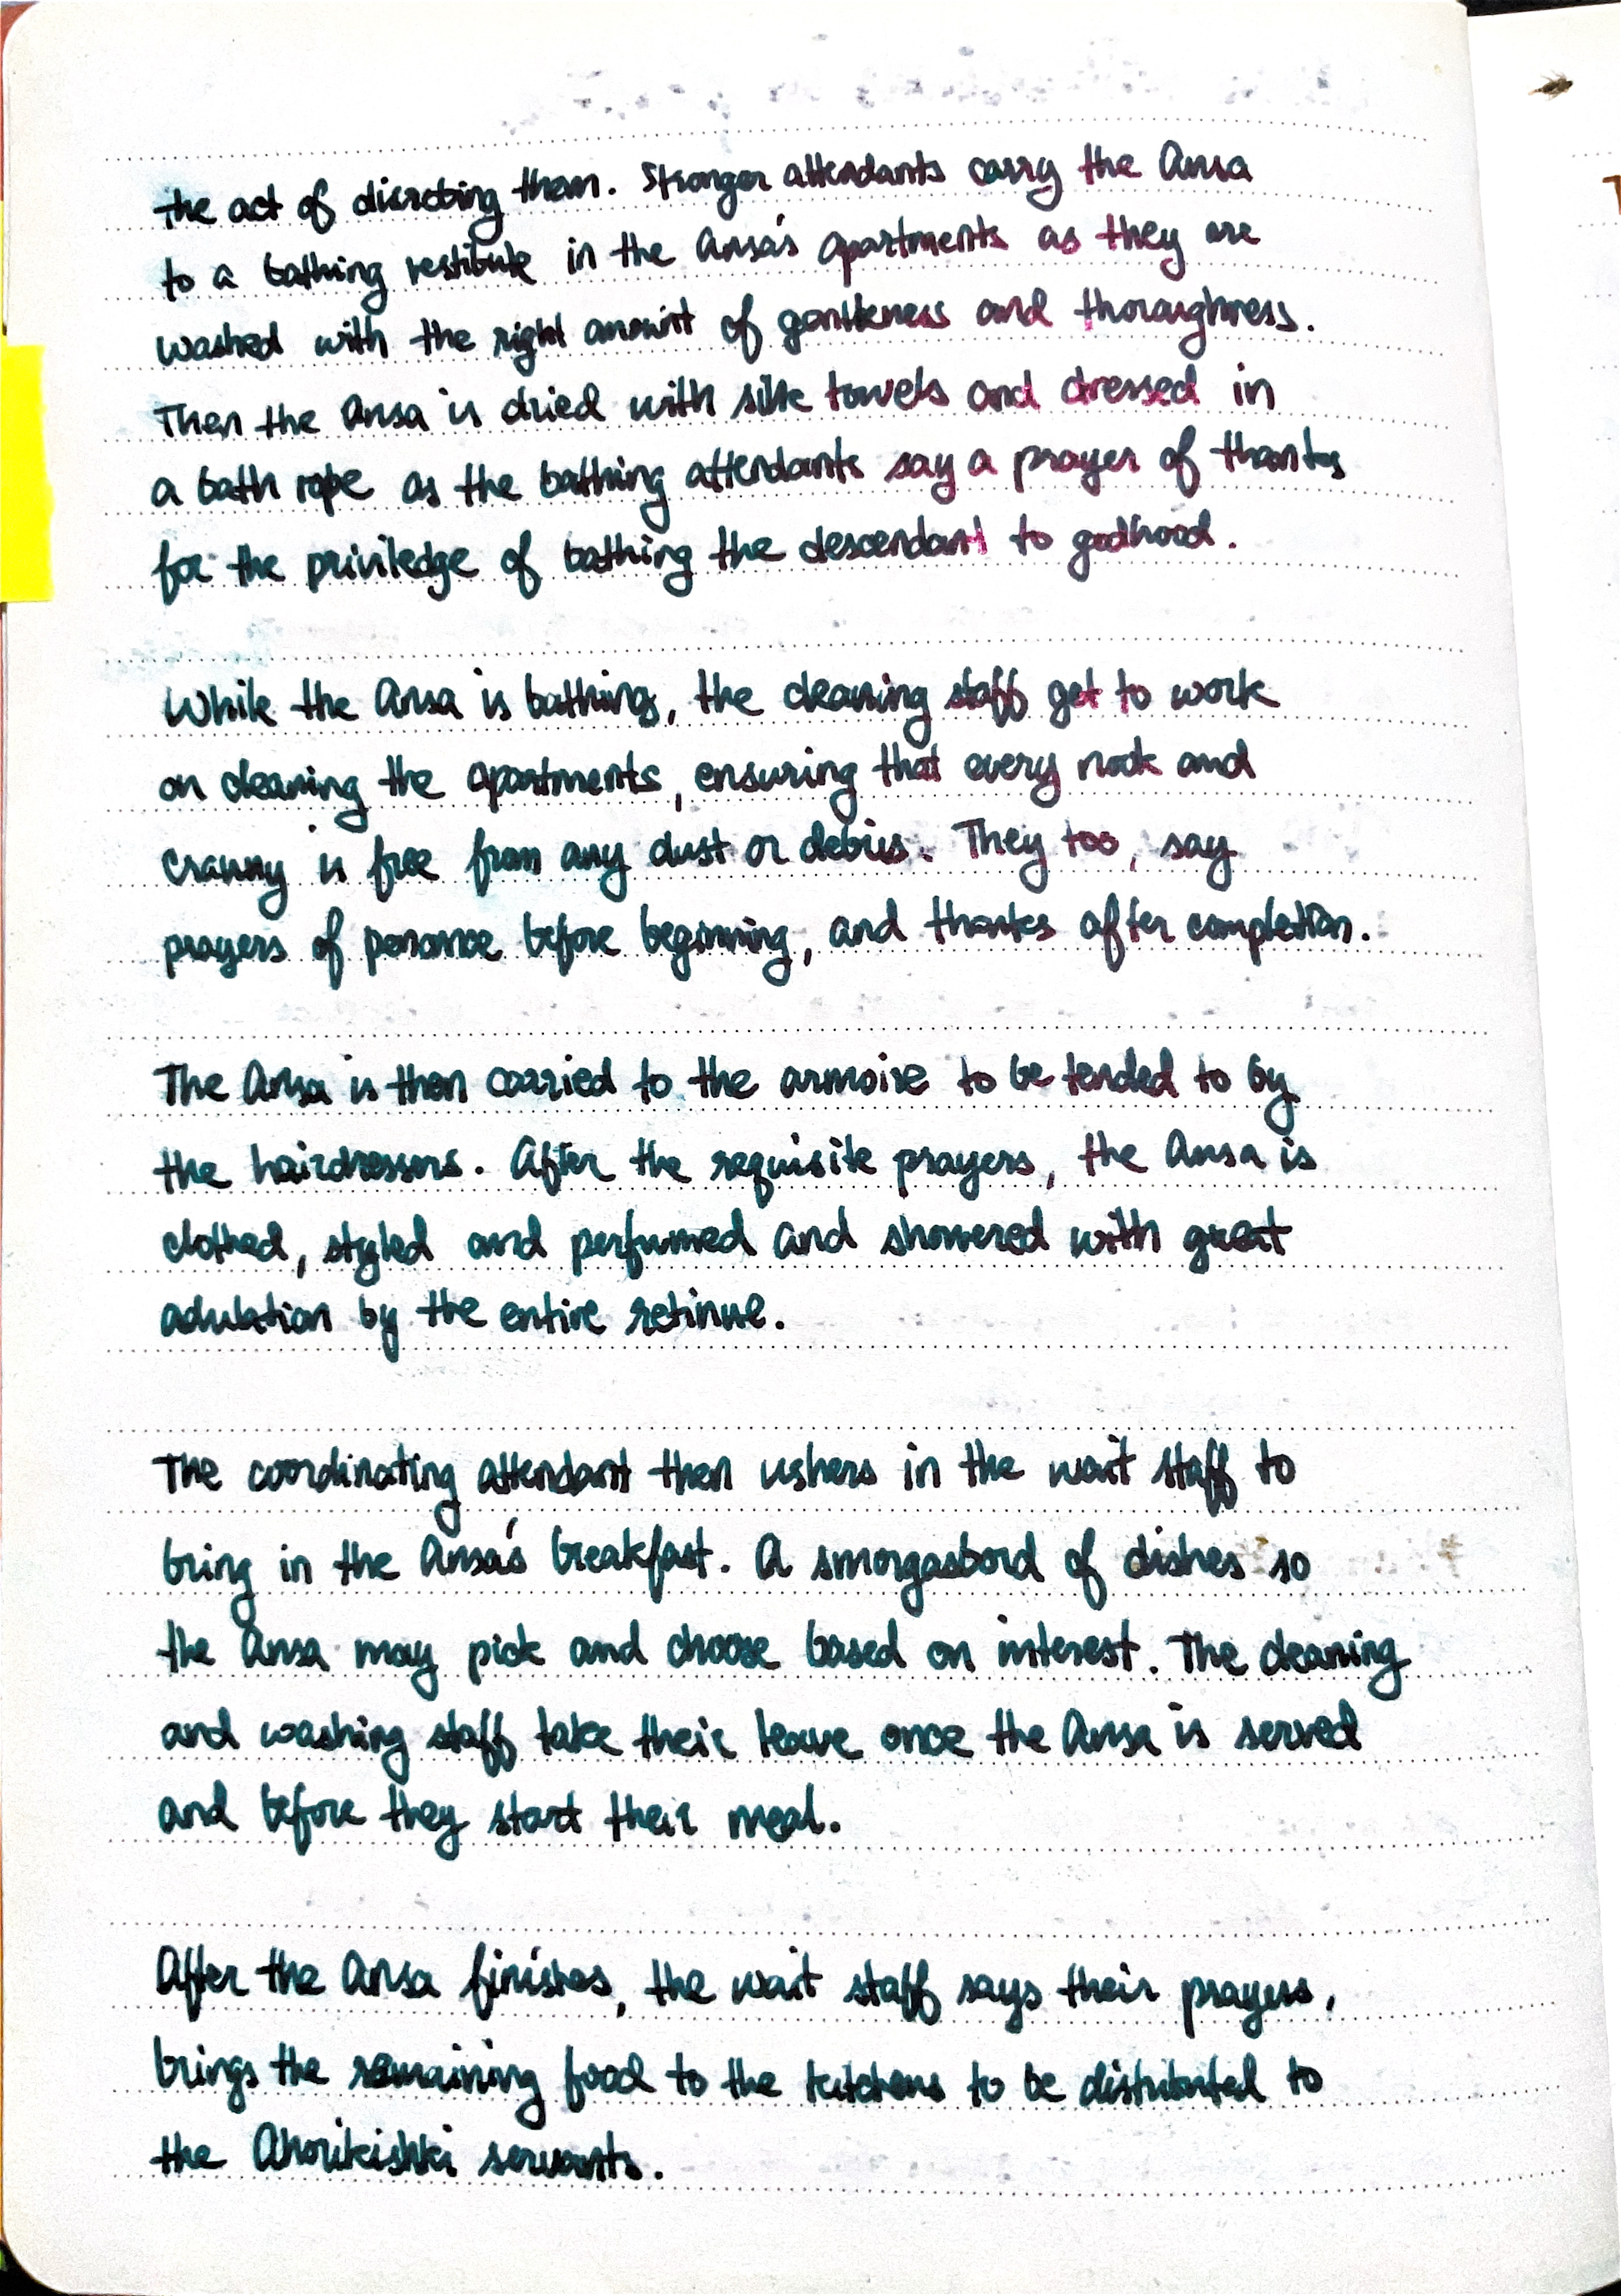 the act of disrobing them. Stronger attendants carry the Ansa
to a bathing vestibule in the Ansa's apartments as they are
washed with the right amount of gentleness and thoroughness.
Then the Ansa is dried with silk towels and dressed in
a bath rope as the bathing attendants say a prayer of thanks
for the priviledge of bathing the descendant to godhood.
While the Ansa is bathing, the cleaning staff get to work
on cleaning the apartments, ensuring that every nook and
cranny is free from any dust or debris. They too, say
prayers of penance before beginning, and thanks after completion.
The Ansa is then carried to the armoire to be tended to by
the hairdressers. After the requisite prayers, the Ansa is
clothed, styled and perfumed and showered with great
adulation by the entire retinue.
The coordinating attendant then ushers in the wait staff to
bring in the Ansa's breakfast. A smorgasbord of dishes so
the Ansa may pick and choose based on interest. The cleaning
and washing staff take their leave once the Ansa is served
and before they start their meal.
After the Ansa finishes, the wait staff says their prayers,
brings the remaining food to the kitchens to be distributed to
the Ahorikishki servants.